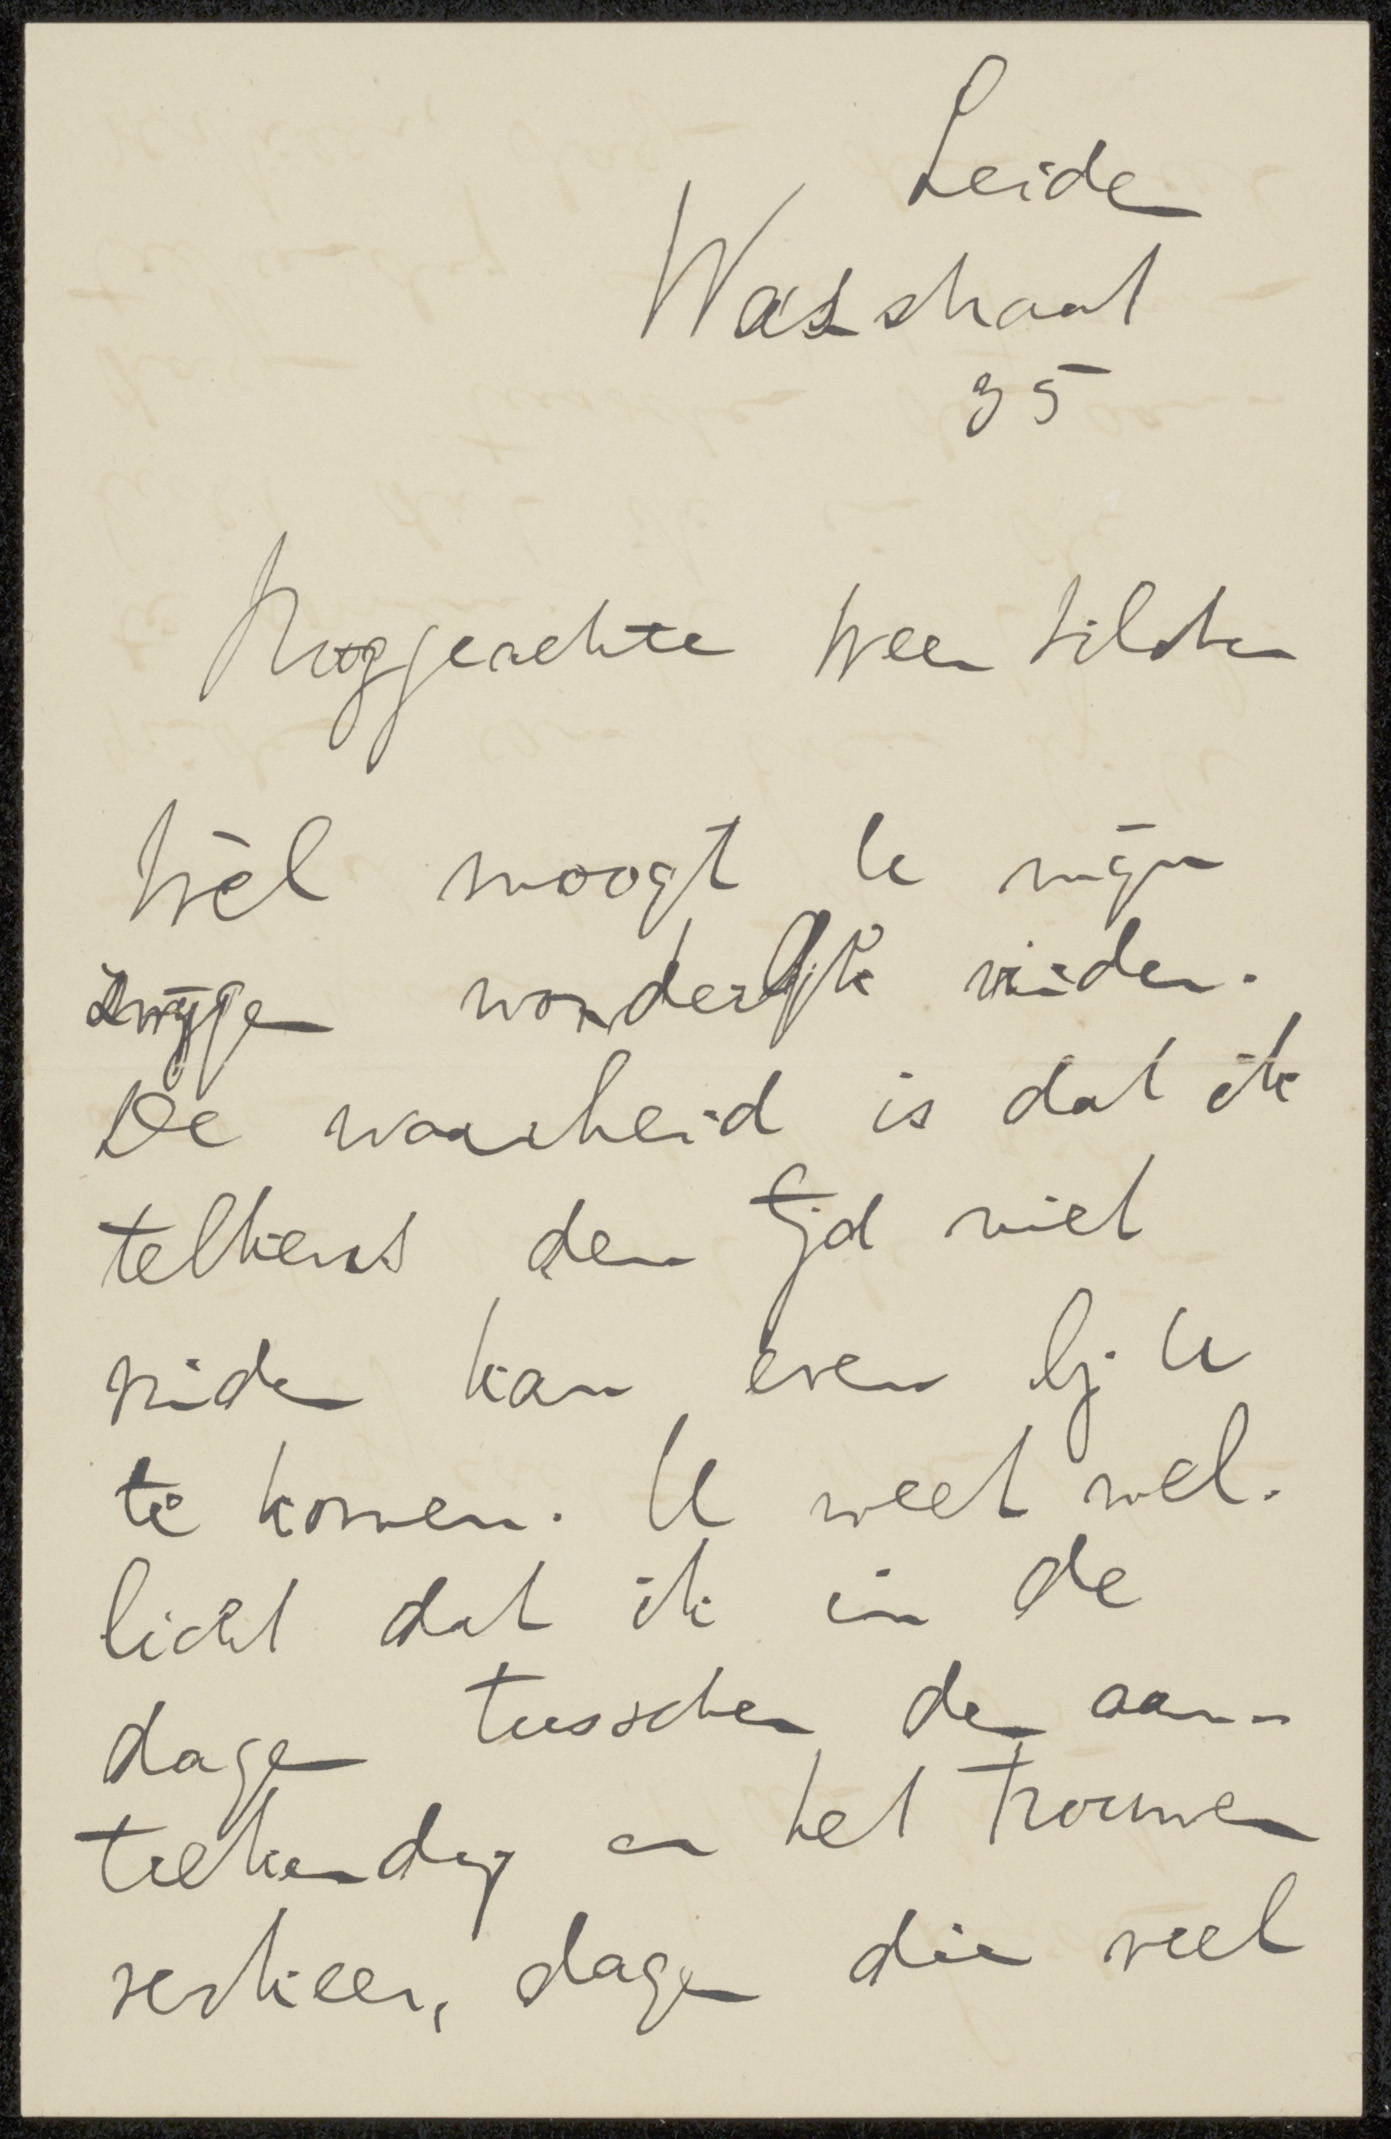 Leide
Wasstraat
35
Hooggeachte Heer Tilden
Wèl moogt U mijn
zwijgen wonderlijk vinden.
De waarheid is dat ik
telkens den tijd niet
vinden kan even bij U
te komen. U weet wel-
licht dat ik in de
dagen tusschen den aan-
teekendag en het trouwen
verkeer, dagen die veel